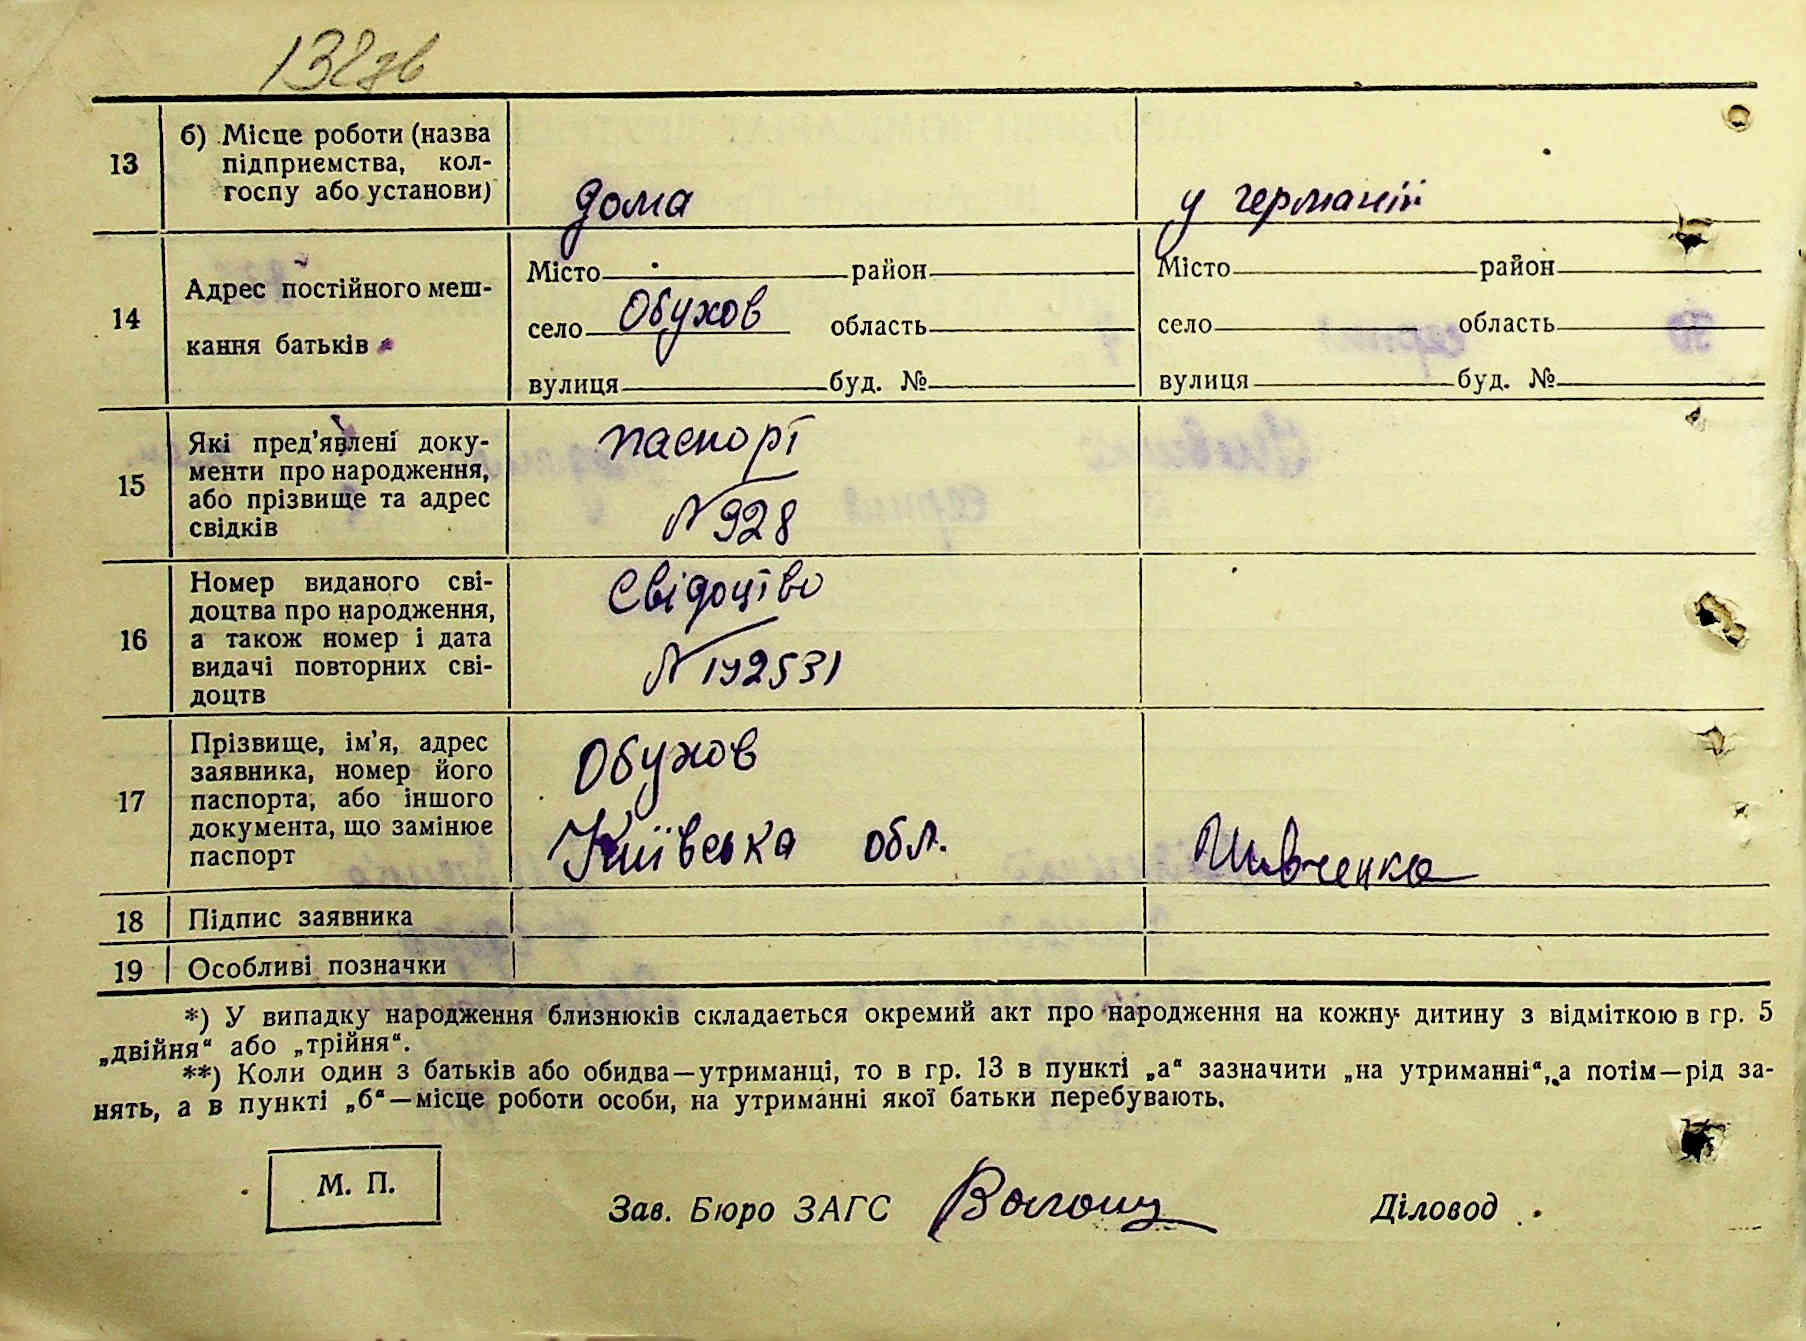 132зв
13
б) Місце роботи (назва
підприємства, кол-
госпу або установи)
дома
у германії
14
Адрес постійного меш-
кання батьків
Місто район
село Обухов область
вулиця буд. №
Місто район
село область
вулиця буд. №
15
Які пред'явлені доку-
менти про народження,
або прізвище та адрес
свідків
паспорт
№ 928
16
Номер виданого сві-
доцтва про народження,
а також номер і дата
видачі повторних сві-
доцтв
Свідоцтво
№ 192531
17
Прізвище, ім'я, адрес
заявника, номер його
паспорта, або іншого
документа, що замінює
паспорт
Обухов
Київська обл.
Шевченко
18 Підпис заявника
19 Особливі позначки
*) У випадку народження близнюків складається окремий акт про народження на кожну дитину з відміткою в гр. 5
„двійня“ або „трійня“.
**) Коли один з батьків або обидва—утриманці, то в гр. 13 в пункті „а“ зазначити „на утриманні“, а потім—рід за-
нять, а в пункті „б“—місце роботи особи, на утриманні якої батьки перебувають.
М. П.
Зав. Бюро ЗАГС
Діловод